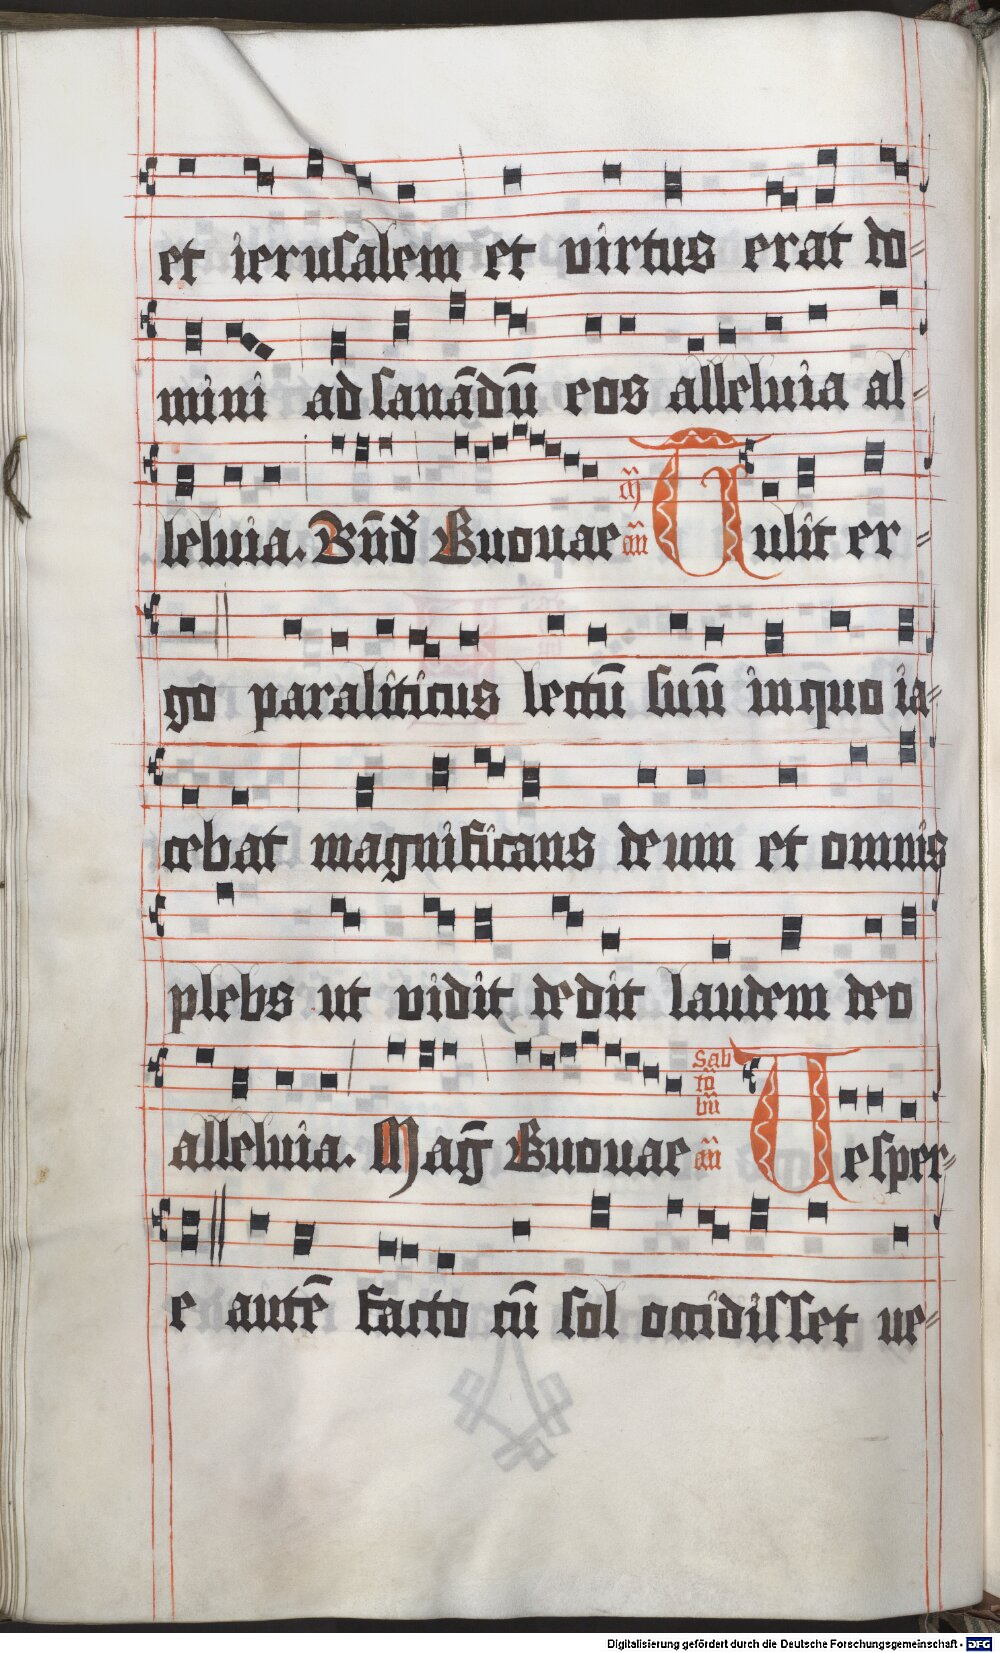 et ierusalem et virtus erat do⸗
mini ad sanādū eos alleluia al⸗
leluia. Bn̄d Euouae
an̄ Tulit er⸗
go paraliticus lectū suū in quo ia⸗
cebat magnificans deum et omnis
plebs ut vidit dedit laudem deo
alleluia. Mag̅ Euouae
Sab
to
bn̄
an̄ Uesper⸗
e autē facto cū sol occidisset ue⸗
Digitalisierung gefördert durch die Deutsche Forschungsgemeinschaft - DFG